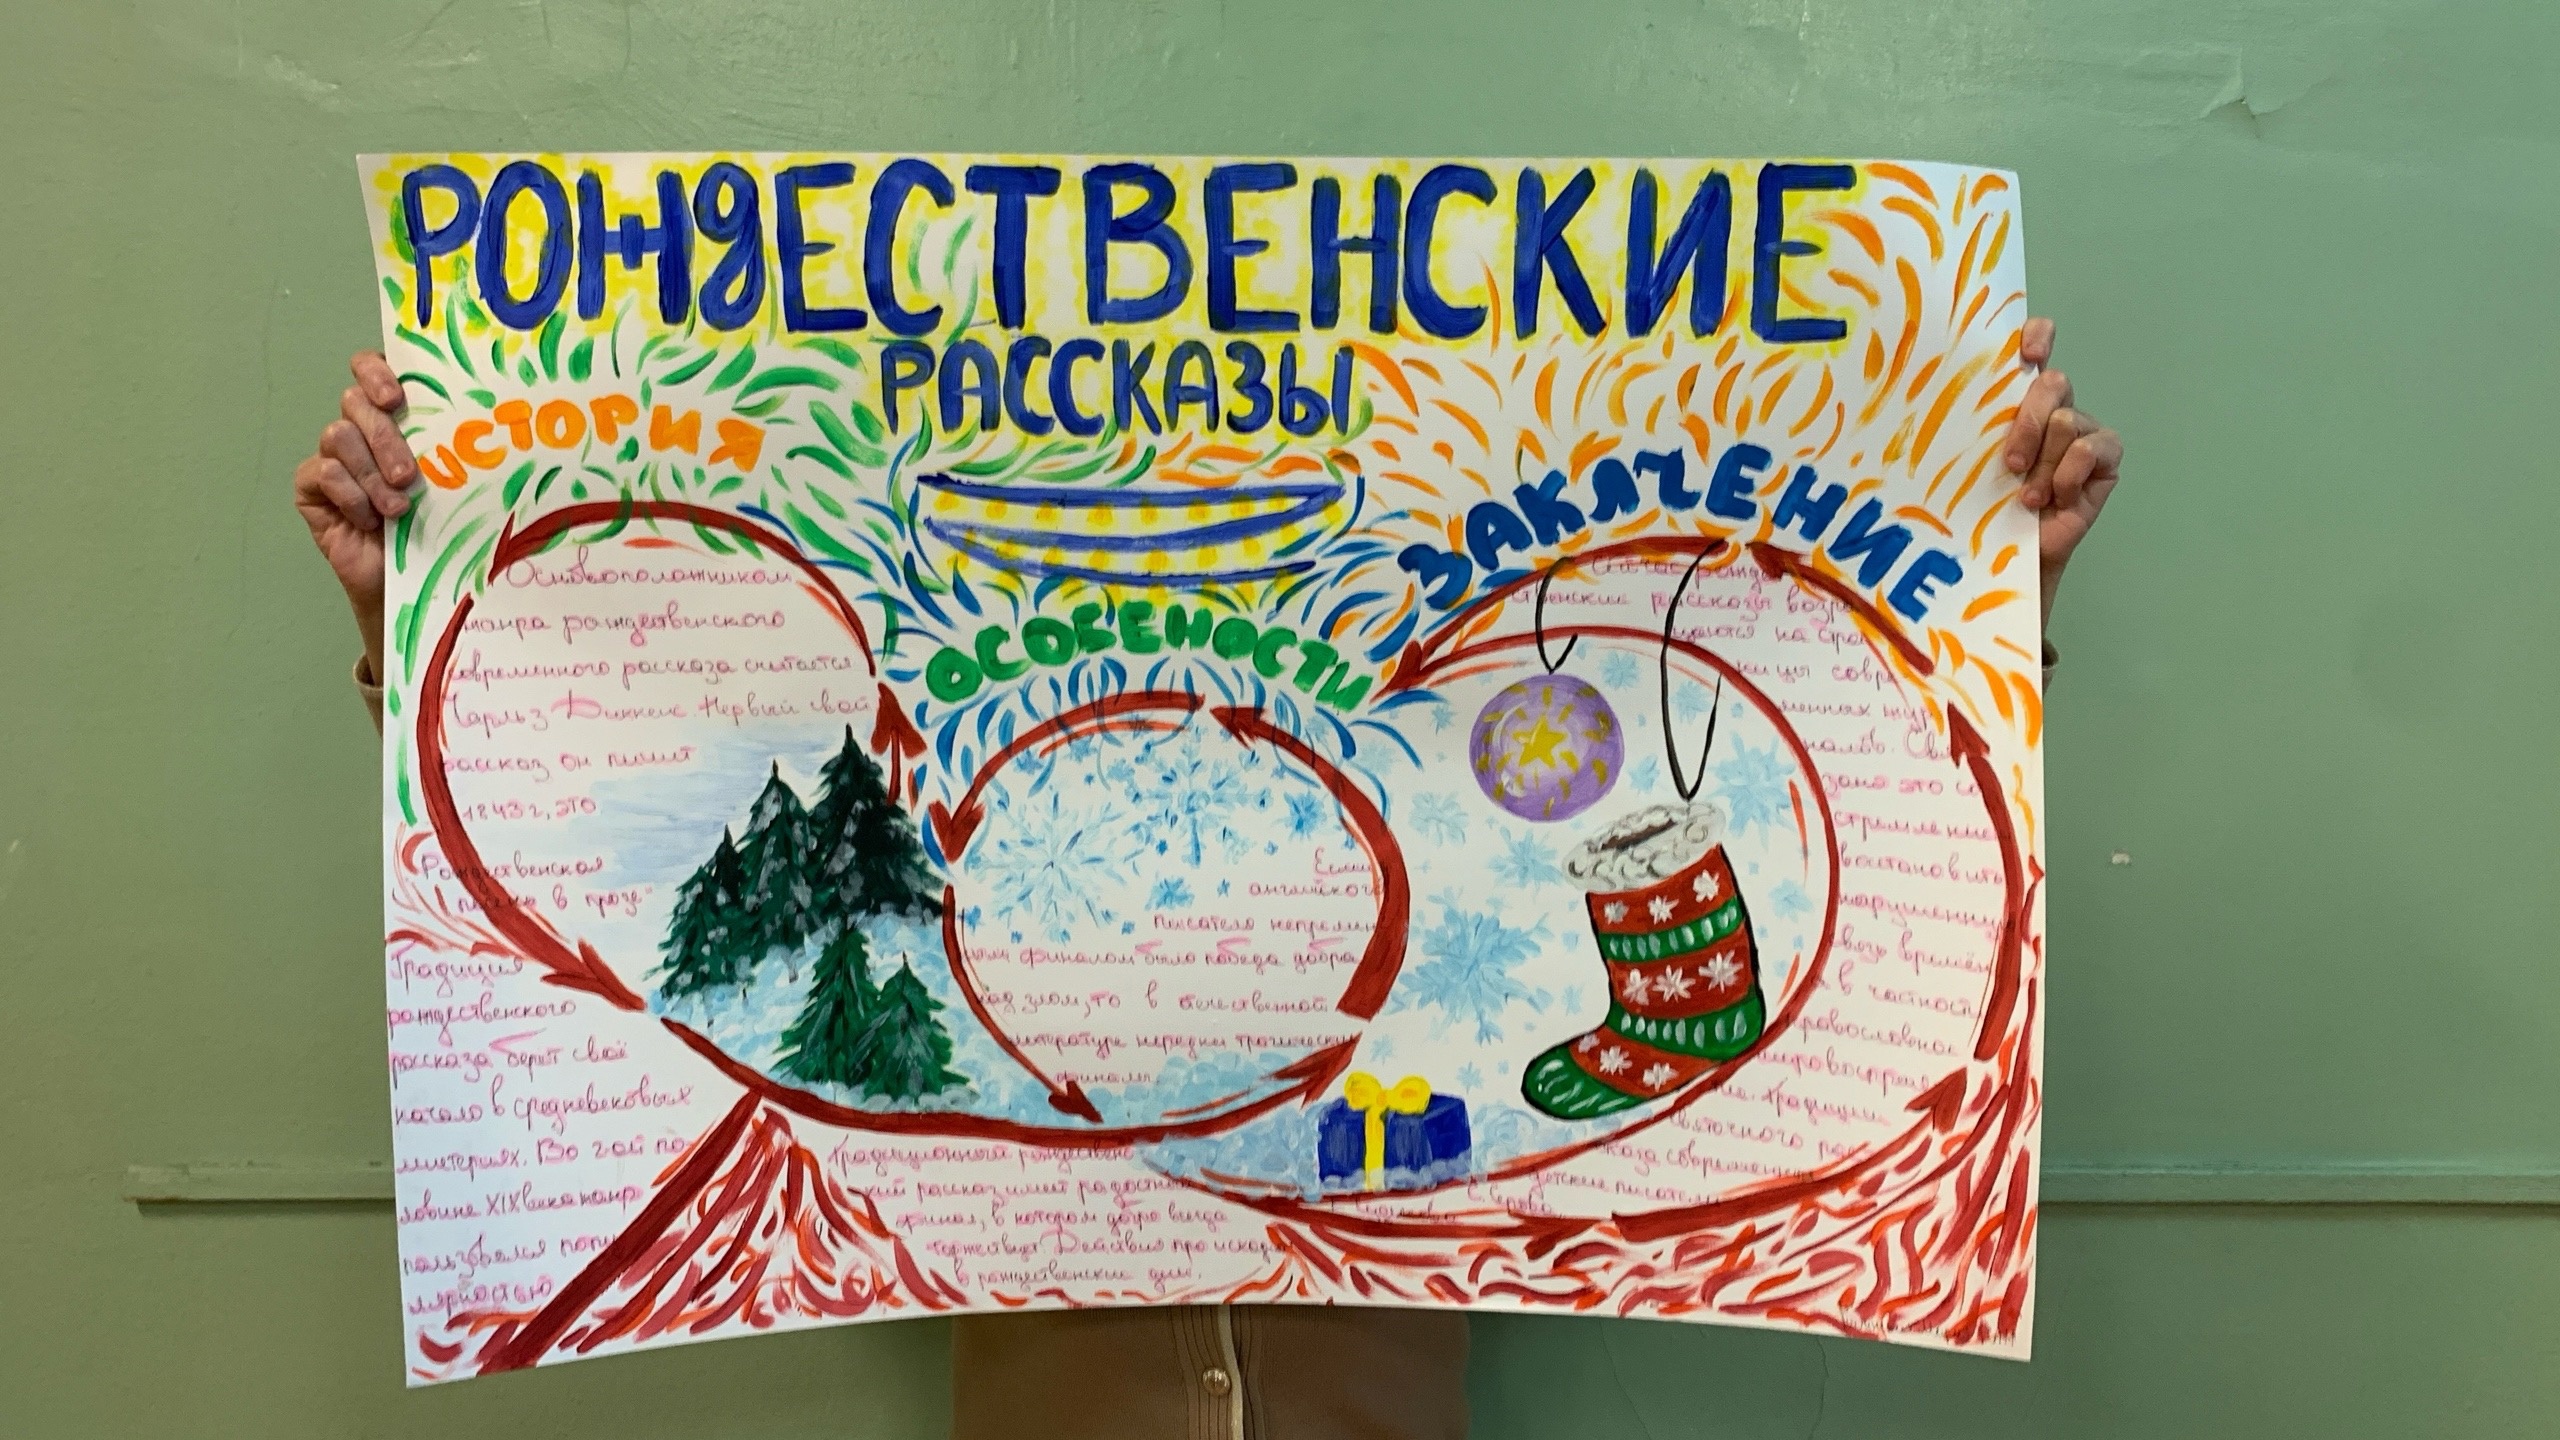 РОЖДЕСТВЕНСКИЕ
РАССКАЗЫ
ИСТОРИЯ
Основоположником
жанра рождественского
современного рассказа считается
Чарльз Диккенс. Первый свой
рассказ он пишит
1843г, это
"Рождественская
песнь в прозе"
Традиция
рождественского
рассказа берёт своё
начало в средневековых
мистериях. Во 2ой по-
ловине XIX века жанр
пользовался попу
лярностью
ОСОБЕНОСТИ
Если
английского
писателя непремен
ным финалом было победа добра
над злом, то в отечественной
литературе нередки трагические
финалы.
Традиционный рождественс
кий рассказ имеет радостный
финал, в котором добро всегда
торжествует. Действия происходят
в рождественские дни.
ЗАКЛЧЕНИЕ
Сейчас рожде
ственские рассказы возра
щаются на стра
ницы совре
менных жур
налов. Свя
зано это со
стремлением
востановить
нарушенную
связь времён
и в частности
православное
мировосприя
тие. Традиции
святочного рас
сказа современные
детские писатели
Е. Серова.